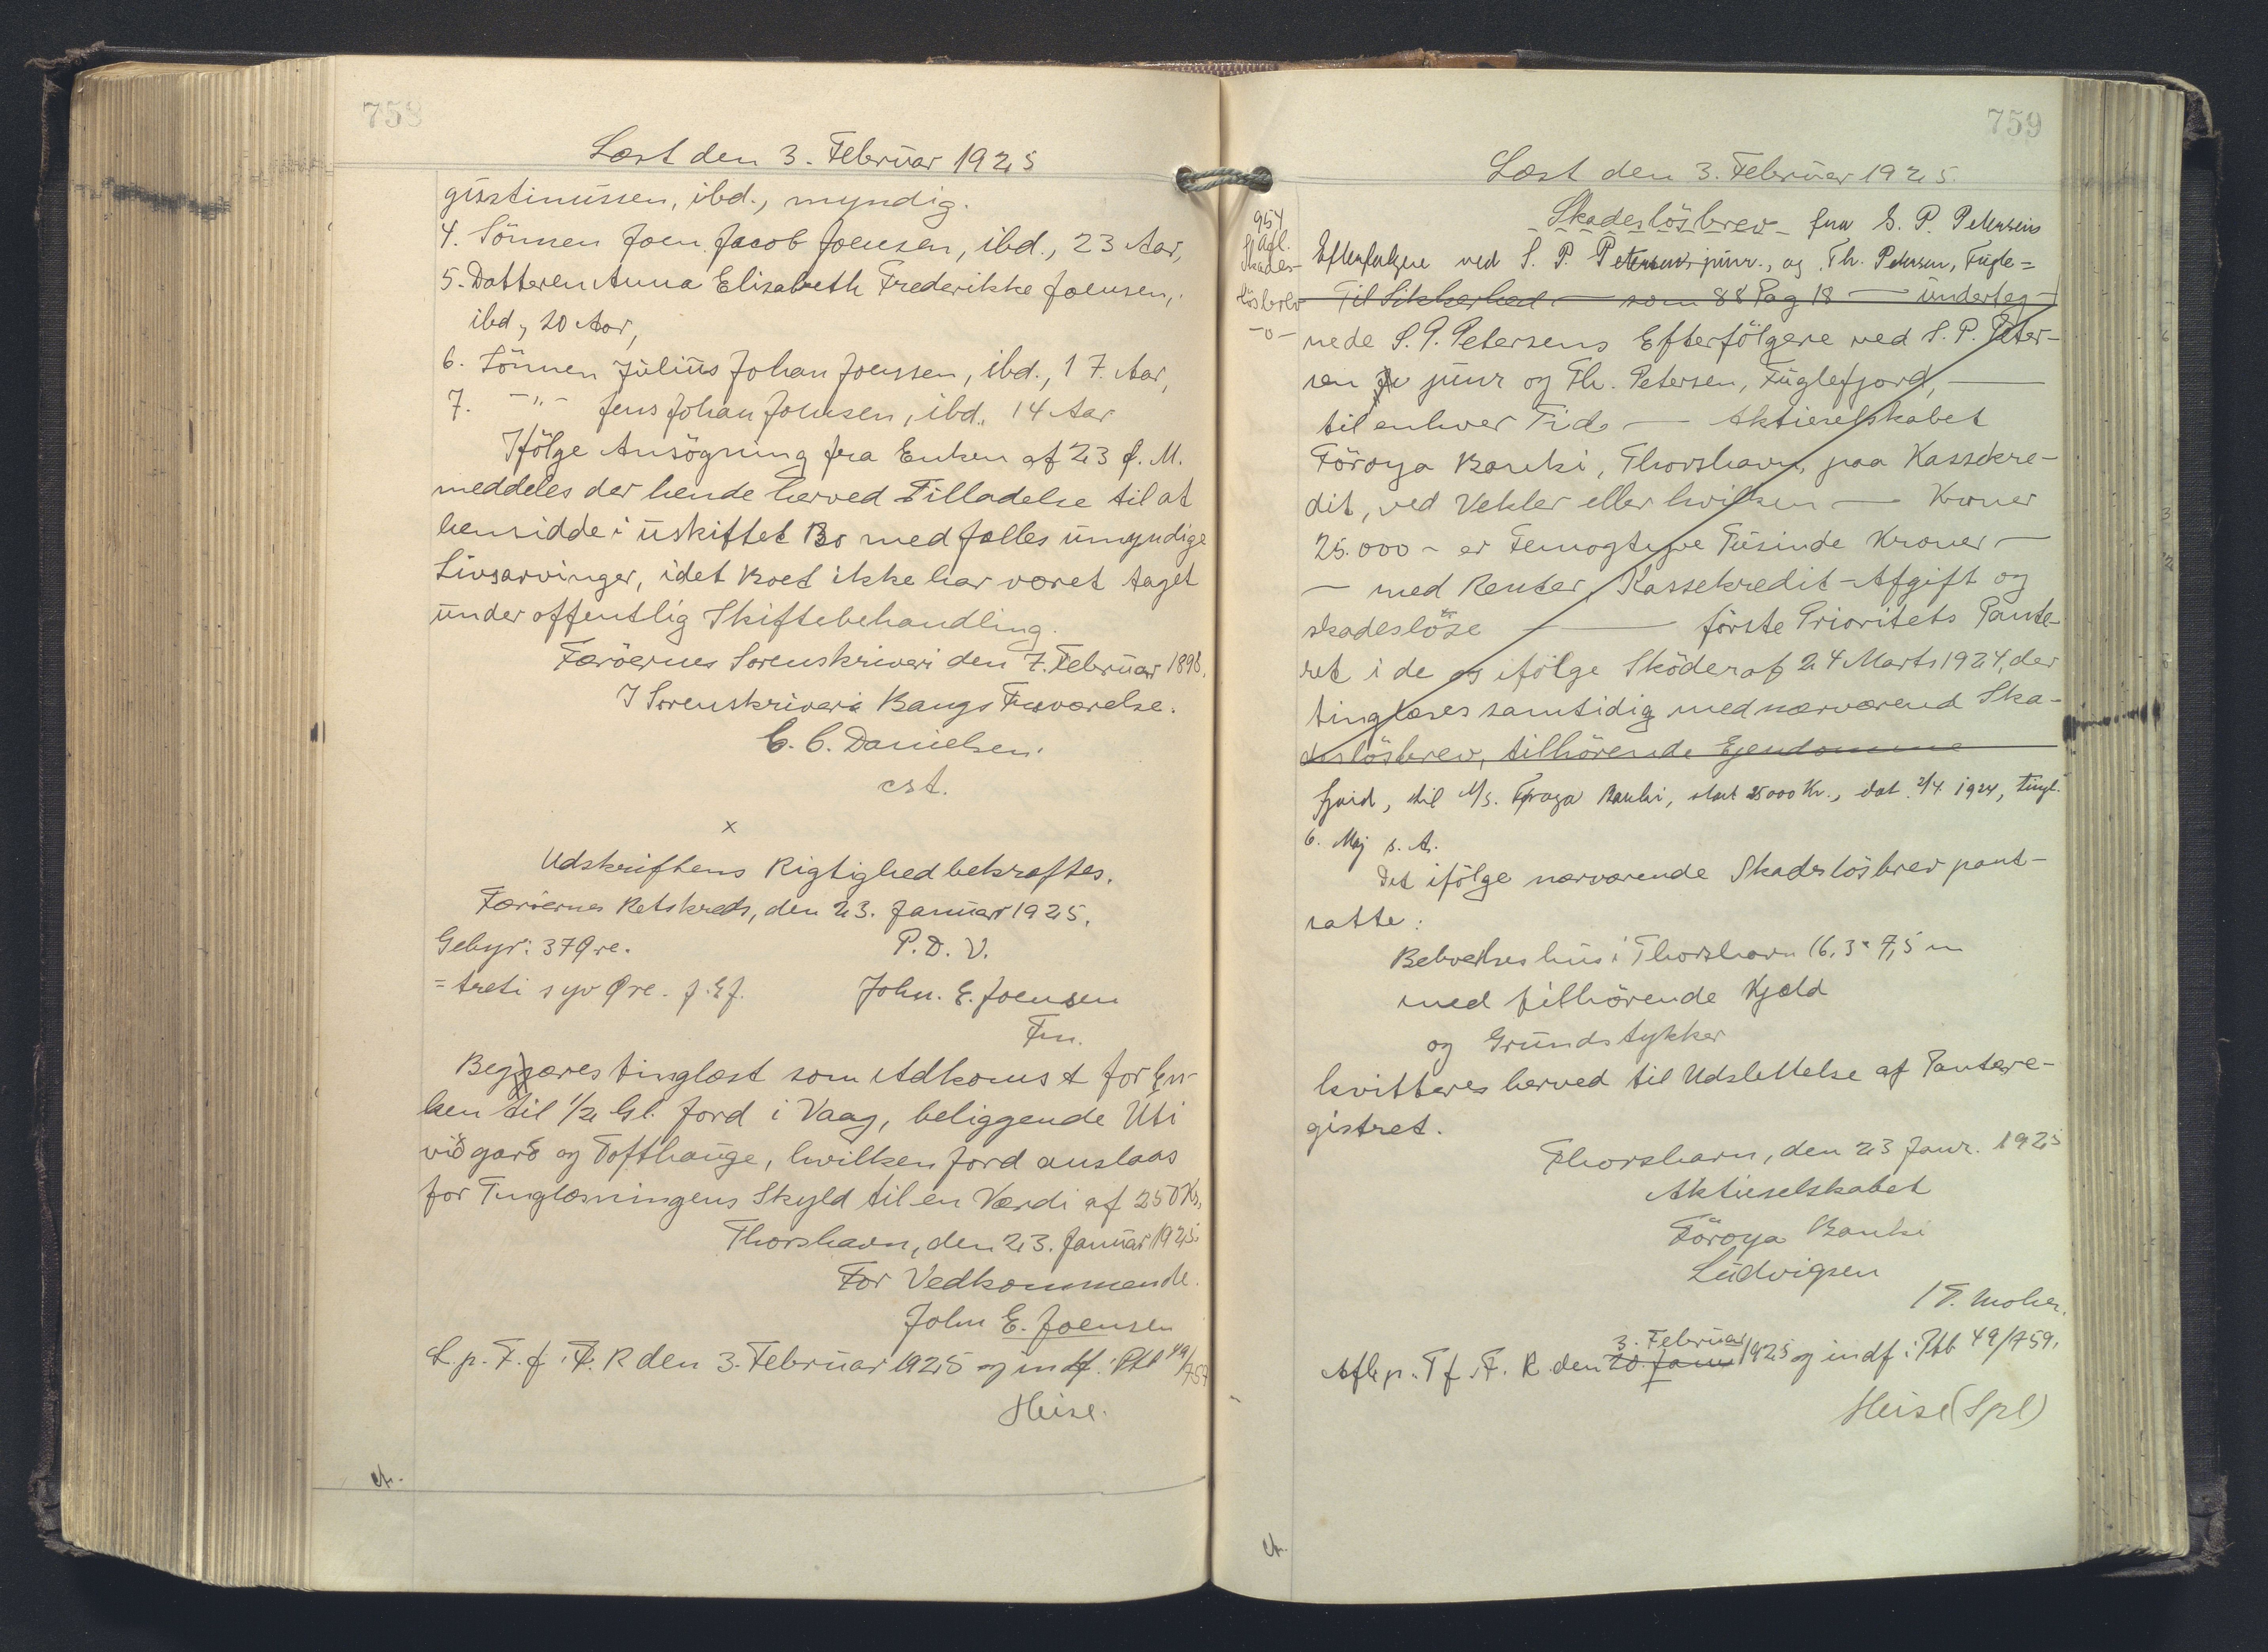 758
Læst den 3. Februar 1925
gustinussen, ibd., myndig.
4. Sönnen Joen Jacob Joensen, ibd., 23 Aar,
5. Datteren Anna Elisabeth Frederikke Joensen,
ibd., 20 Aar,
6. Sönnen Julius Johan Joensen, ibd., 17. Aar,
7. -"- Jens Johan Joensen, ibd., 14 Aar
Ifölge Ansögning fra Enken af 23 f. M.
meddeles der hende herved Tilladelse til at
hensidde i uskiftet Bo med fælles umyndige
Livsarvinger, idet Boet ikke har været taget
under offentlig Skiftebehandling.
Færöernes Sorenskriveri den 7. Februar 1898.
I Sorenskriver Bangs Fraværelse.
C. C. Danielsen.
cst.
x
Udskriftens Rigtighed bekræftes.
Færöernes Retskreds, den 23. Januar 1925.
Gebyr: 37 Øre. P. D. V.
= treti syv Øre. J. E J. John. E. Joensen
Fm.
Begjæres tinglæst som Adkomst for En-
ken til 1/2 Gl. Jord i Vaag, beliggende Úti
við garð og Tofthauge, hvilken Jord anslaas
for Tinglæsningens Skyld til en Værdi af 250 Kr.
Thorshavn, den 23. Januar 1925.
For Vedkommende.
John E. Joensen
L. p. T. f. F. R den 3. Februar 1925 og indf. i Ptb 49/757
Heise.
A.
759
Læst den 3. Februar 1925.
954
Afl.
Skades-
lösbrev
-o-
Skadeslösbrev fra S. P. Petersens
Efterfølgere ved S. P. Petersen junr., og Th. Petersen, Fugle=
Til Sikkerhed — som 88 Pag 18 — underteg-
nede S. P. Petersens Efterfölgere ved S. P. Peter-
sen junr og Th. Petersen, Fuglefjord, —
til enhver Tid — Aktieselskabet
Föroya Banki, Thorshavn, paa Kassekre-
dit, ved Veksler eller hvilken — Kroner
25.000 - er Femogtyve Tusinde Kroner —
— med Renter, Kassekredit-Afgift og
skadeslöse — förste Prioritets Pante-
ret i de os ifölge Sköder af 24 Marts 1924, der
tinglæses samtidig med nærværend Ska-
deslösbrev, tilhörende Ejendomme
fjord, til A/S. Føroya Banki, stort 25000 Kr., dat. 2/4 1924, tingl.
6. Maj s. A.
Det ifölge nærværende Skadeslösbrev pant-
satte:
Beboelseshus i Thorshavn 16,3 x 7,5 m
med tilhörende Kjæld
og Grundstykker
kvitteres herved til Udslettelse af Pantere-
gistret.
Thorshavn, den 23 Janr. 1925
Aktieselskabet
Föroya Banki
Ludvigsen
/ T. Mohr.
3. Februar
Aflæ p. T f. F. R den 20. Janu 1925 og indf i Ptb 49/759.
Heise (Spl)
A.